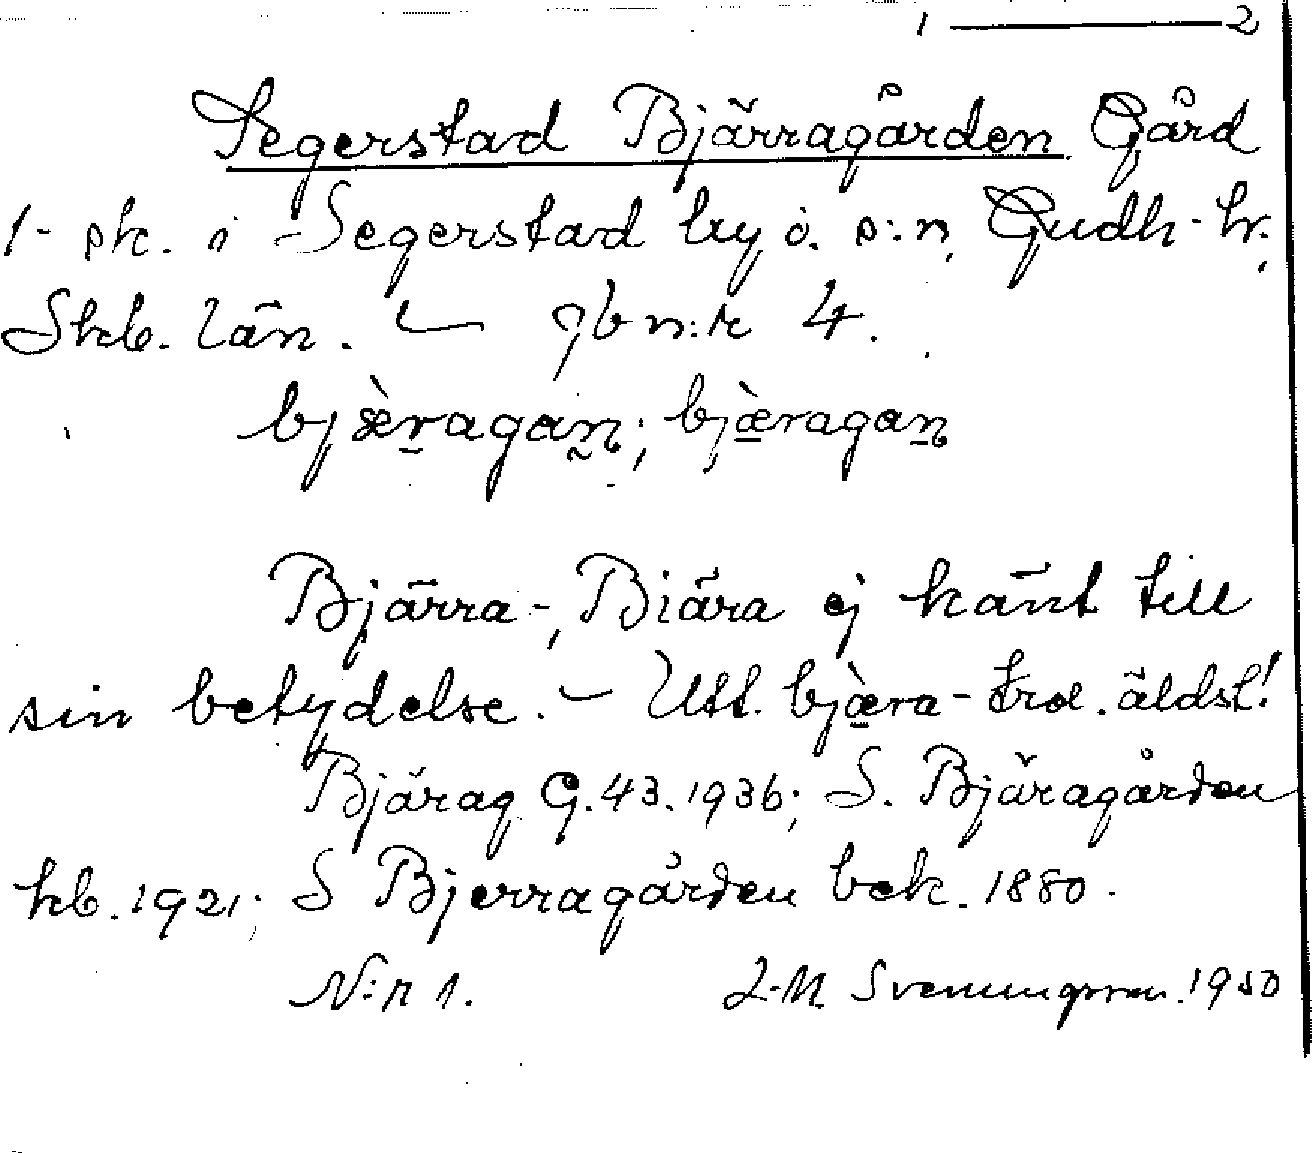 1 — 2
Segerstad Bjärragården Gård
1- sk. i Segerstad by o. s:n, Gudh. hr.
Skb. län. — Jb n:r 4.
bjæ̀ragan; bjæ̀ragan
Bjärra-, Biära ej känt till
sin betydelse. – Utt. bjæ̀ra- trol. äldst!
Bjärag G. 43. 1936; S. Bjäragården
kb. 1921; S Bjerragården bek. 1880.
N:r 1. L-M Svenungsson. 1950